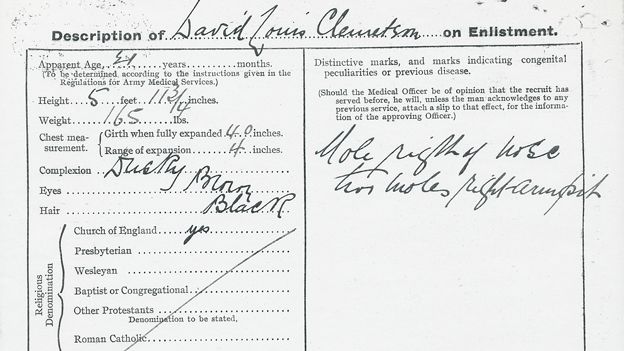 Description of David Louis Clemetson on Enlistment.
Apparent Age, 21 years months.
(To be determined according to the instructions given in the
Regulations for Army Medical Services.)
Height 5 feet 11 3/4 inches.
Weight 165 lbs.
Chest mea-
surement.
Girth when fully expanded 40 inches.
Range of expansion 4 inches.
Complexion Dusky
Eyes Brown
Hair Black
Religious
Denomination
Church of England yes
Presbyterian
Wesleyan
Baptist or Congregational
Other Protestants
Denomination to be stated.
Roman Catholic
Distinctive marks, and marks indicating congenital
peculiarities or previous disease.
(Should the Medical Officer be of opinion that the recruit has
served before, he will, unless the man acknowledges to any
previous service, attach a slip to that effect, for the informa-
tion of the approving Officer.)
Mole rigth of nose
two moles right armpit